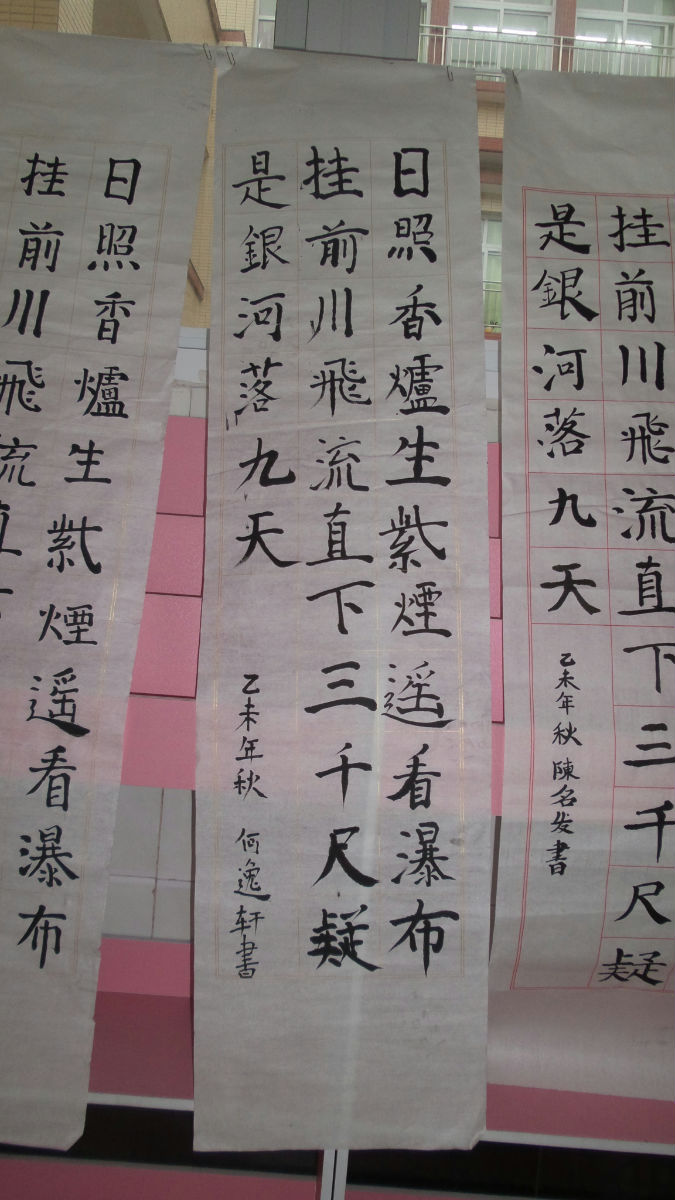 挂前川飛流直下三千尺疑
是銀河落九天
乙未年秋 陳名发書
日照香爐生紫煙遥看瀑布
挂前川飛流直下三千尺疑
是銀河落九天
乙未年秋 何逸轩書
日照香爐生紫煙遥看瀑布
挂前川飛流直